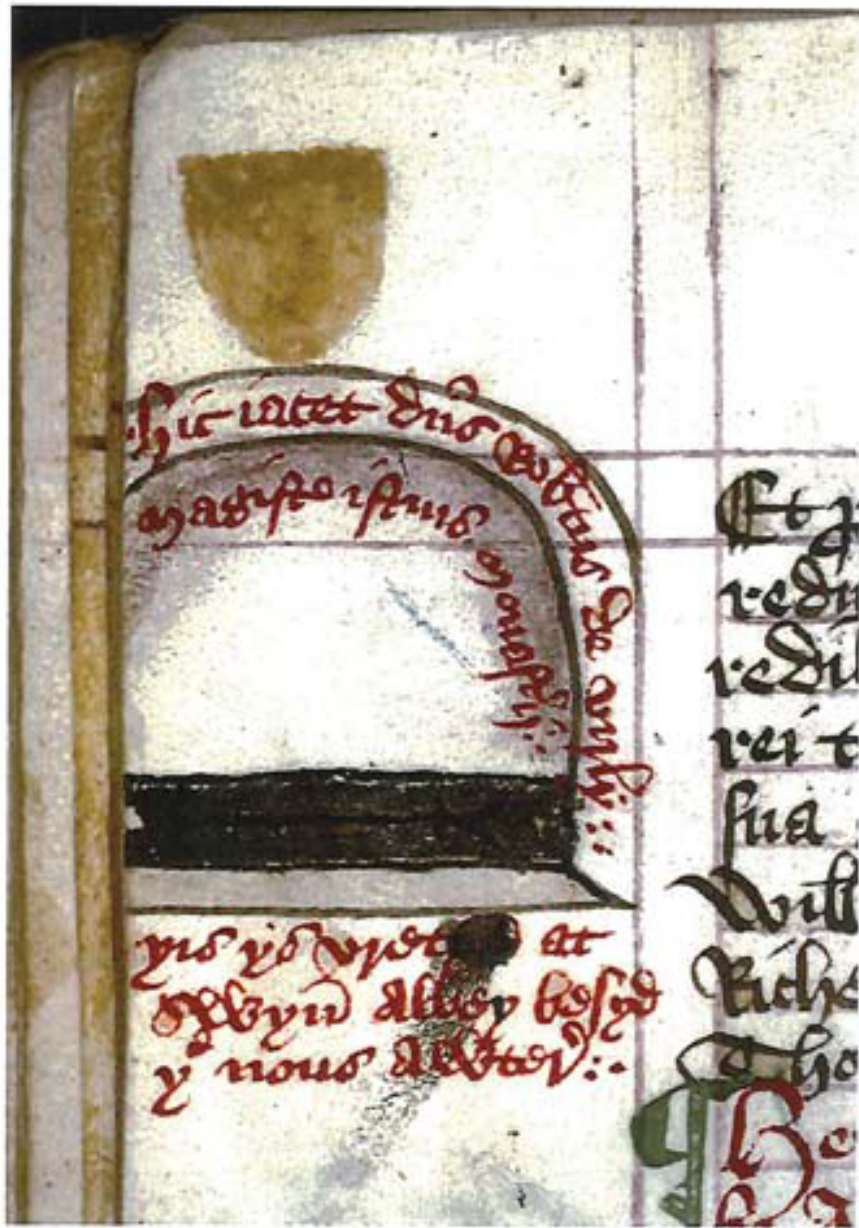 Hic iacet dns Robtus de
magister istius monastij
yis ys vret at
Swyn abbey besyd
yͤ nous awter
Et
redi
redil
rei t
sua
Will
Riche
Tho
He